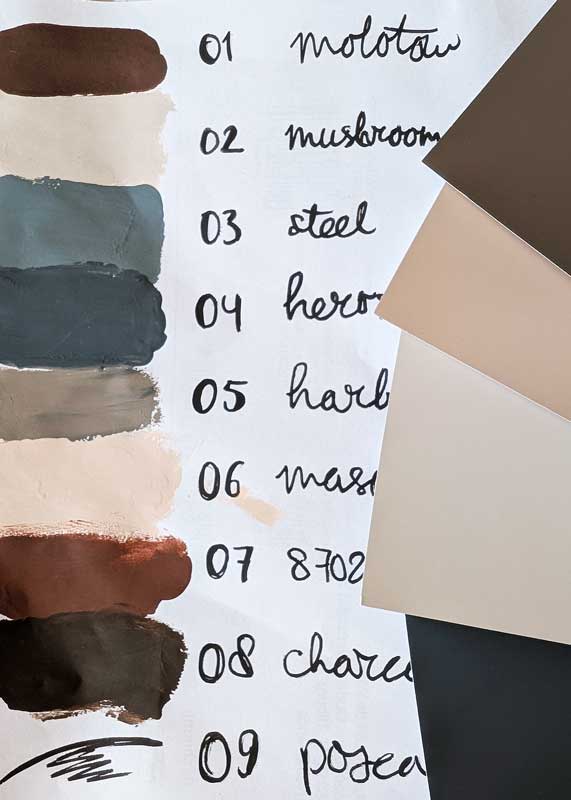 01 molotow
02 mushroom
03 steel
04 hero
05 harb
06 mas
07 8702
08 charc
09 posca